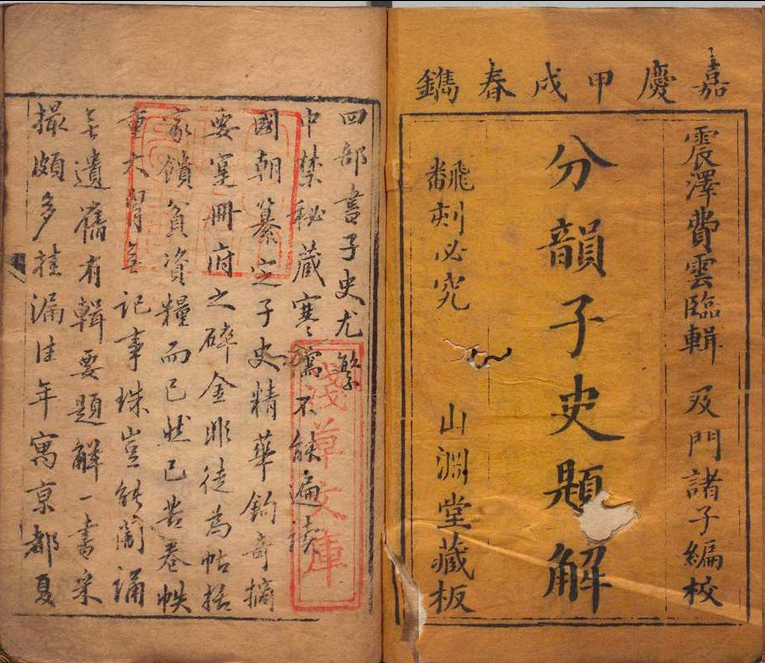 嘉慶甲戌春鐫
震澤費雲臨輯 及門諸子編校
分韻子史題解
飜刻必究 山淵堂藏板
四部書子史尤繁
中禁秘藏寒窩不能遍讀
國朝纂定子史精華鈎奇摘
要寔冊府之碎金非徒為帖括
家饋貧資糧而已然已苦卷帙
重大胷無記事珠豈能闇誦
無遺舊有輯要題解一書采
撮頗多挂漏往年寓京都夏
淺草文庫